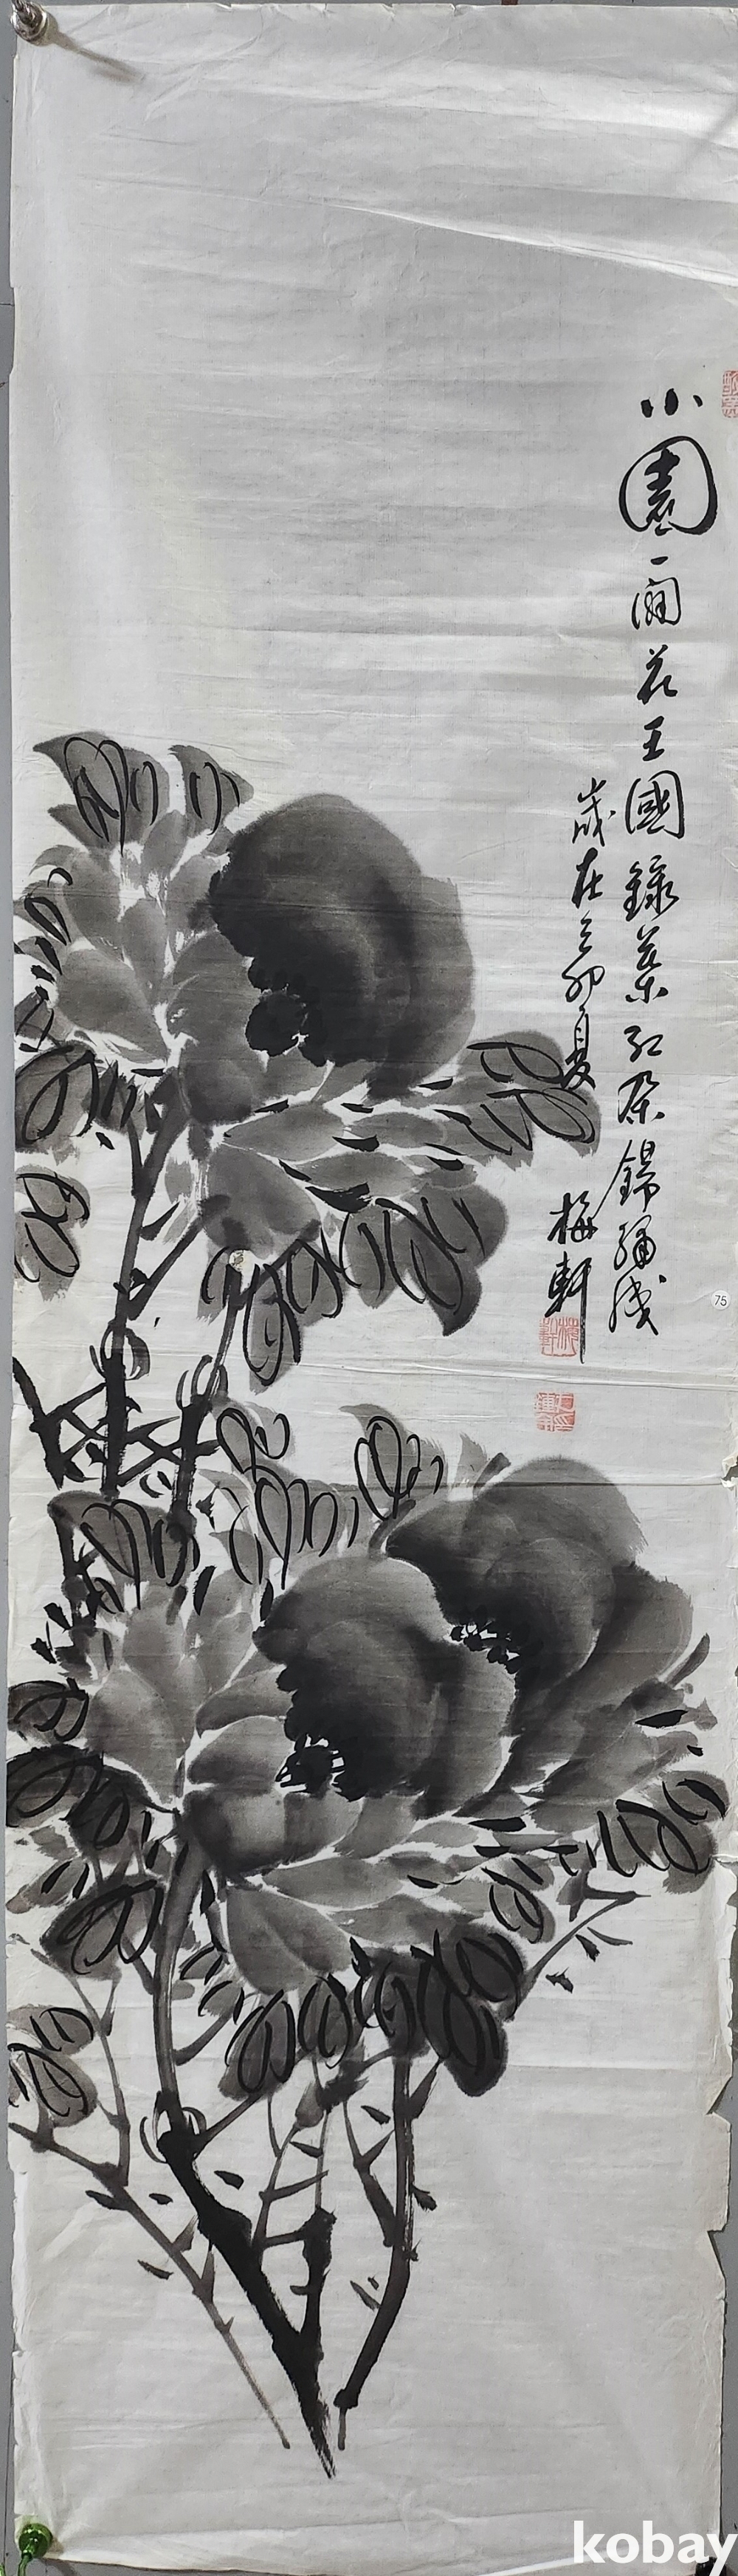 小園一閙花王國綠葉紅朶錦繡成
歲在乙卯夏
梅軒
75
kobay